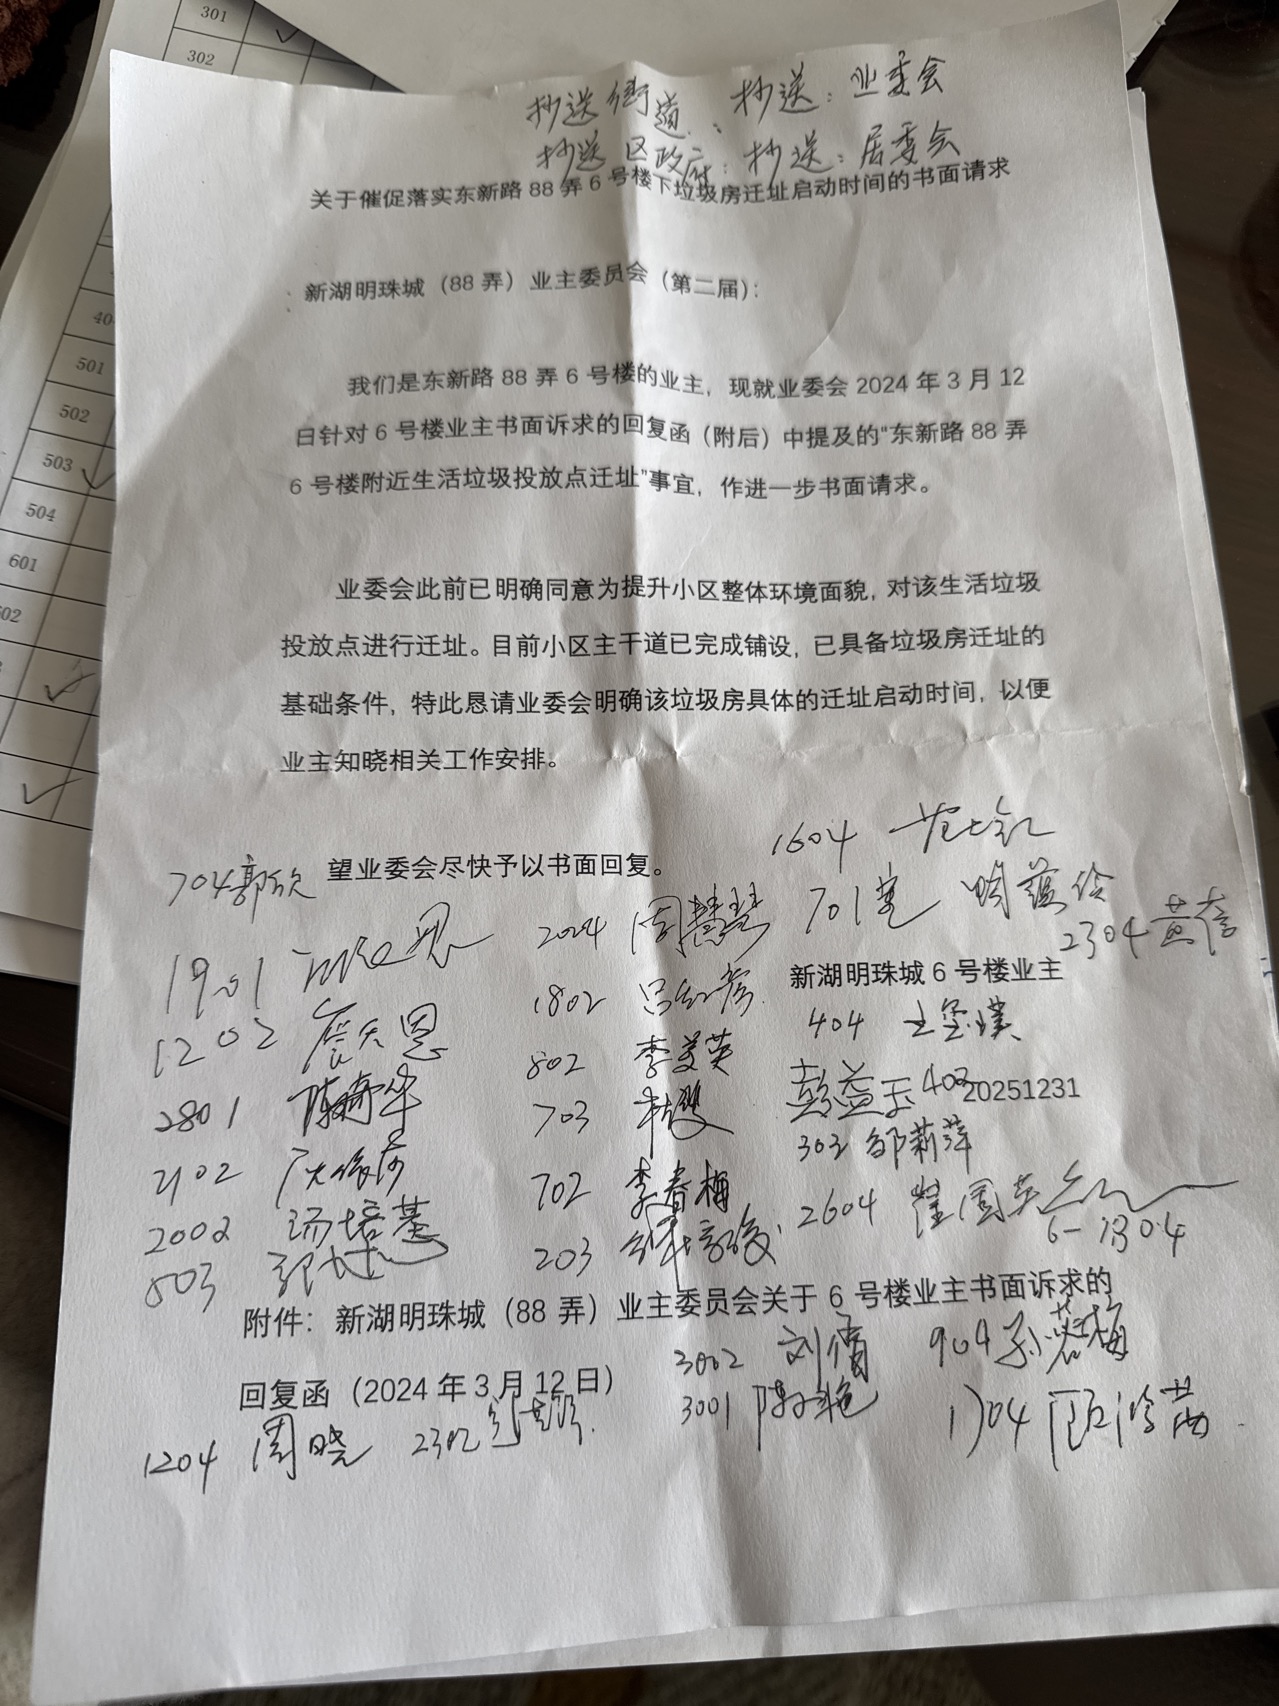 301
302
抄送街道: 抄送:业委会
抄送区政府: 抄送:居委会
关于催促落实东新路 88 弄 6 号楼下垃圾房迁址启动时间的书面请求
新湖明珠城（88 弄）业主委员会（第二届）:
40
501
502
503
504
601
02
我们是东新路 88 弄 6 号楼的业主，现就业委会 2024 年 3 月 12
日针对 6 号楼业主书面诉求的回复函（附后）中提及的“东新路 88 弄
6 号楼附近生活垃圾投放点迁址”事宜，作进一步书面请求。
业委会此前已明确同意为提升小区整体环境面貌，对该生活垃圾
投放点进行迁址。目前小区主干道已完成铺设，已具备垃圾房迁址的
基础条件，特此恳请业委会明确该垃圾房具体的迁址启动时间，以便
业主知晓相关工作安排。
1604
704 郭欣 望业委会尽快予以书面回复。
701室
1901 2024 周慧琴 2304 黄蓓
新湖明珠城 6 号楼业主
1202 詹天恩 1802 吕红彦 404
2801 802 李美英 彭益玉 402 20251231
2102 703 杜雙 302 邹莉萍
2002 汤培基 702 李春梅 2604 崔国英
803 203 6-1304
附件：新湖明珠城（88 弄）业主委员会关于 6 号楼业主书面诉求的
3002 刘倩 904 孙蓉梅
回复函（2024 年 3 月 12 日）
3001 陈艳 1704
1204 周晓 2302